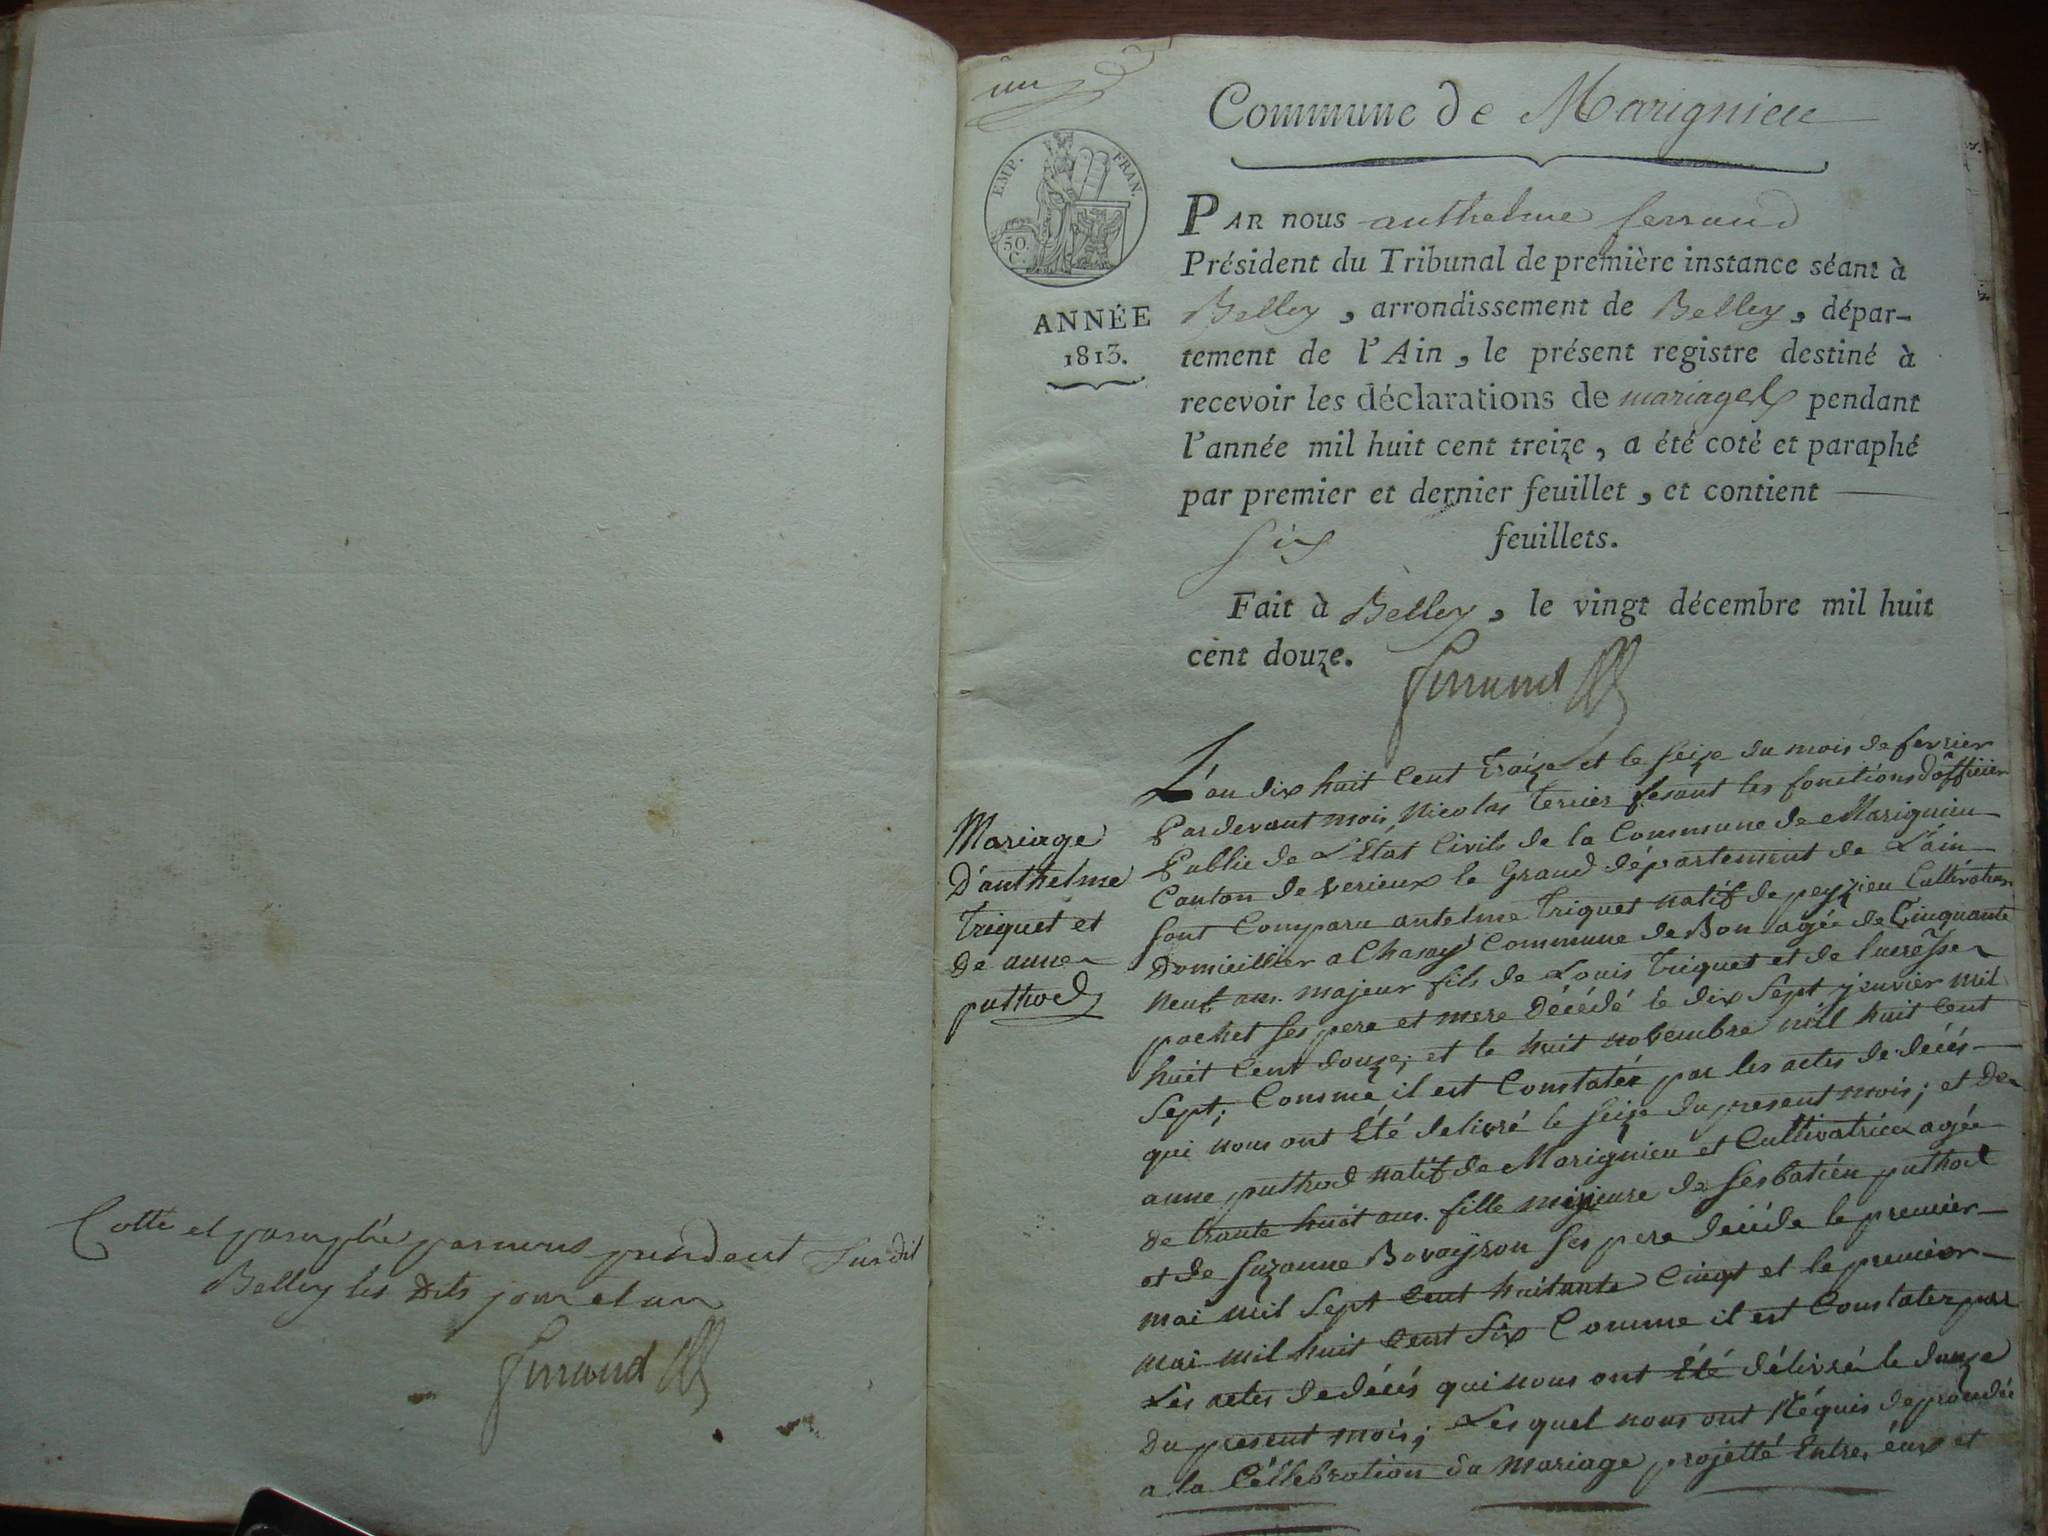 Cotté et paraphé par nous président Susdit
Belley les dits jour et an
Ferrand
un
EMP. FRAN.
50.
C.
ANNÉE
1813.
Commune de Marignieu
PAR nous anthelme ferrand
Président du Tribunal de première instance séant à
Belley, arrondissement de Belley, dépar-
tement de l'Ain, le présent registre destiné à
recevoir les déclarations de mariages pendant
l'année mil huit cent treize, a été coté et paraphé
par premier et dernier feuillet, et contient
six feuillets.
Fait à Belley, le vingt décembre mil huit
cent douze.
Ferrand
Mariage
D'anthelme
Triquet et
De anne
puthod
L'an dix huit Cent Traize et le seize du mois de fevrier
Pardevant moi Nicolas Terrier fesant les fonctions d'officier
Public de L'Etat Civils de la Commune de Marignieu
Canton de verieux le Grand département de L'ain
sont Comparu antelme Triquet natif de peyzieu Cultivateur
Domicillier a Chavay Commune de Bon agée de Cinquante
neuf ans. majeur fils de Louis Triquet et de lucresse
pochet ses pere et mere Décédé le dix sept jenvier mil
huit Cent douze; et le huit novembre mil huit Cent
sept; Comme il est Constatér par les actes de décés
qui nous ont Eté delivré le seize du present mois; et De
anne puthod natif de Marignieu et Cultivatrice agée
de trante huit ans. fille mejeure de sesbatien puthod
et de suzanne Bovayron ses pere décéde le premier
mai mil sept Cent huitante Cinqt et le premier
mai mil huit Cent six Comme il est Constater par
Les actes de décés qui nous ont Eté délivré le douze
Du present mois; Les quel nous ont Réquis de procédé
a la Céllebration du Mariage projetté Entre eux et